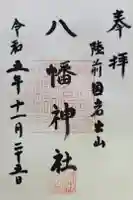 奉拝
陸前国名古山
八幡神社
令和五年十一月二十五日